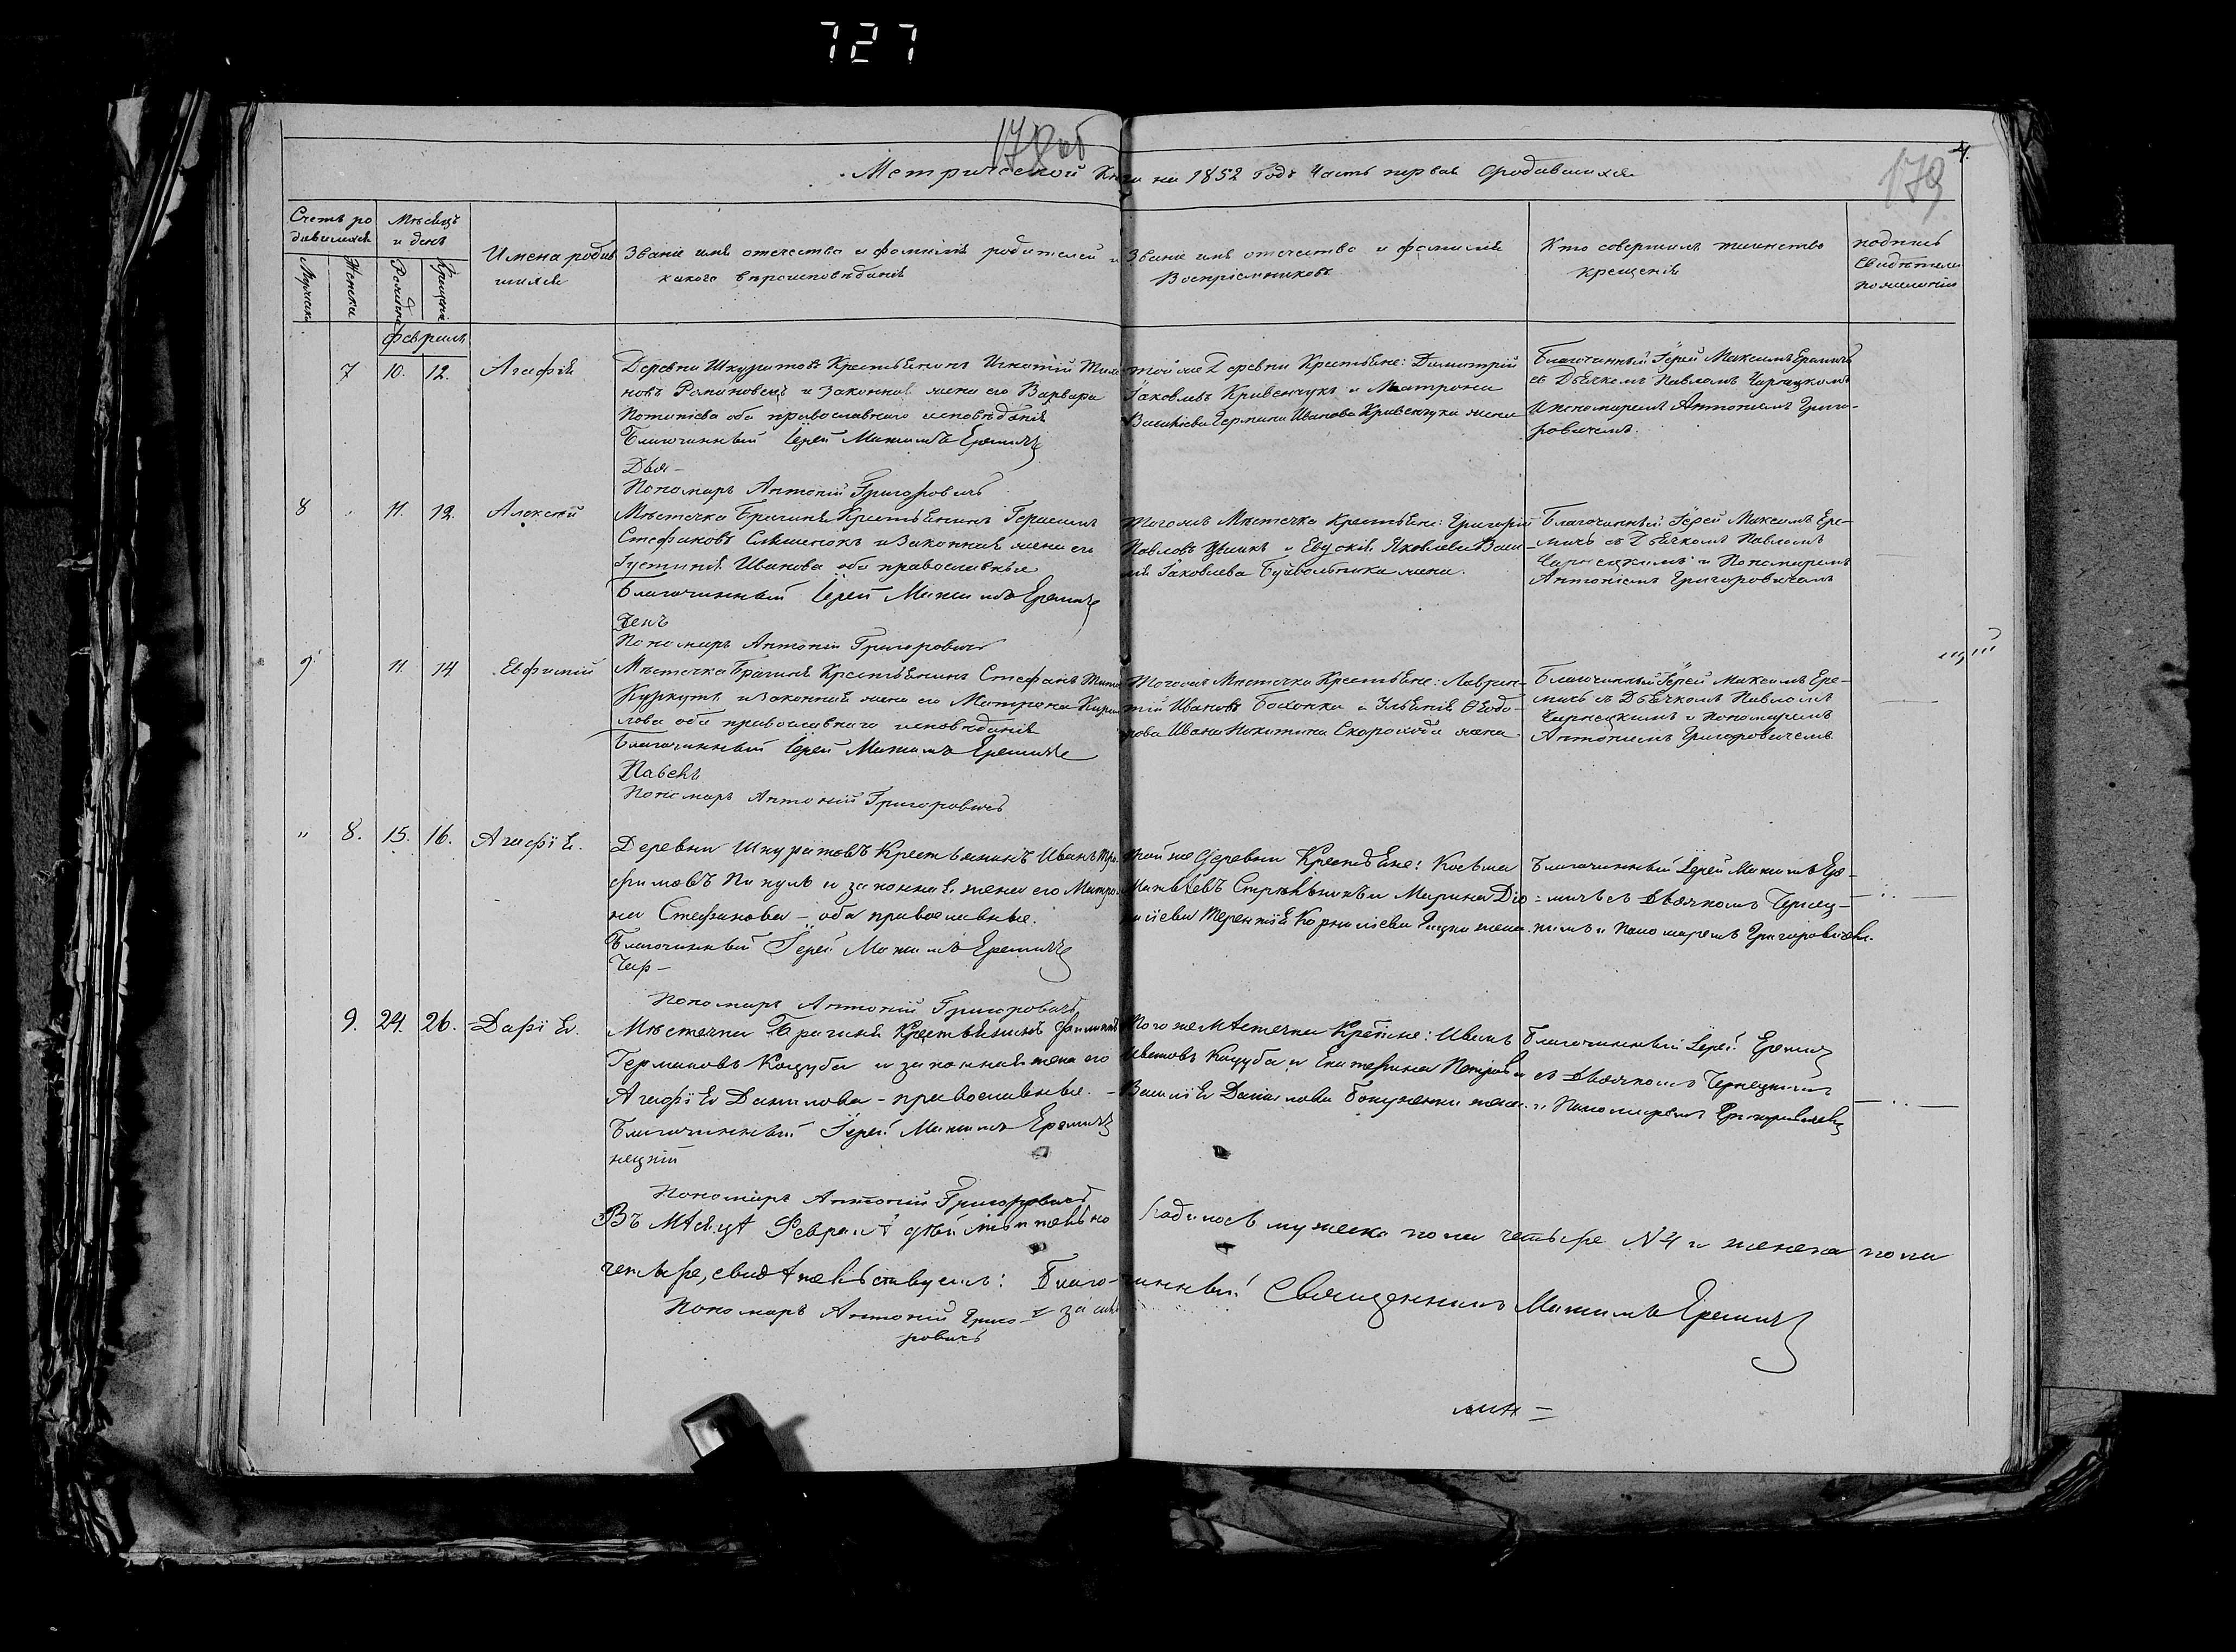 727
178 об
179
4.
Метрической Книги на 1852 Годъ Часть первая Ородившихся
Счетъ ро
дившихся
Мѣсяцъ
и день
Имена родив
шихся
Званіе имя отечество и фамилія родителей и
какого вѣроисповѣданія
Званіе имя отечество и фамилія
Воспріемниковъ
Кто совершилъ таинство
крещенія
подпись
Свидѣтелей
по желанію
Мужеска
Женска
Рожденія
Крещенія
Февраль
7 10. 12. Агафія
Деревни Шкуратовъ Крестьянинъ Игнатій
новъ Романовецъ и законная жена его Варвара
Потапіева оба православнаго исповѣданія
Благочинный Іерей Максимъ Еремичъ
Дья-
Пономарь Антоній Григоровичъ
той же Деревни Крестьяне: Димитрій
Іаковлевъ Кривенчукъ и Матрона
Василіева Германа Иванова Кривенчука жена
Благочинный Іерей Максимъ Еремичъ
съ Дьячкомъ Павломъ Чарнецкимъ
Ипономаремъ Антоніемъ Григо-
ровичемъ.
8 11. 12. Алексей
Мѣстечка Брагиня Крестьянинъ Герасимъ
Стефановъ и Законная жена его
Іустинія Иванова оба православные
Благочинный Іерей Максимъ Еремичъ
ченъ
Пономарь Антоній Григоровичъ
Тогожъ Мѣстечка Крестьяне: Григорій
Павловъ и Евдокія Яковлева Васи-
лія Іаковлева жена.
Благочинный Іерей Максимъ Ере-
мичъ съ Дьячкомъ Павломъ
Чарнецкимъ и Пономаремъ
Антоніемъ Григоровичемъ
9 11. 14 Евфимій
Мѣстечка Брагиня Крестьянинъ Стефанъ
и законная жена его Матрона Кири
лова оба православнаго исповѣданія
Благочинный Іерей Максимъ Еремичъ
Павелъ
Пономарь Антоній Григоровичъ
Тогожъ Мѣстечка Крестьяне: Лаврен-
тій Ивановъ Бохонка и Ульянія Ѳеодо-
рова Ивана Никитина Скорохода жена
Благочинный Іерей Максимъ Ере-
мичъ съ Дьячкомъ Павломъ
Чарнецкимъ и Пономаремъ
Антоніемъ Григоровичемъ
" 8. 15. 16. Агафія.
Деревни Шкуратовъ Крестьянинъ Иванъ Тро-
фимовъ Пикуль и законная жена его Матро-
на Стефанова - оба православные.
Благочинный Іерей Максимъ Еремичъ
Чар-
Пономарь Антоній Григоровичъ
Той же Деревни Крестьяне: Косьма
Матвѣевъ Стрѣльникъ и Марина Діо-
нисіева Терентія Корниліева жена.
Благочинный Іерей Максимъ Ере-
мичъ съ Дьячкомъ Чернец-
кимъ и Пономаремъ Григоровичемъ.
9. 24. 26. Дарія.
Мѣстечка Брагиня Крестьянинъ Филиппъ
Германовъ Коцуба и законная жена его
Агафія Данилова - православные.
Благочинный Іерей Максимъ Еремичъ
нецкій
Пономарь Антоній Григоровичъ
Того же Мѣстечка Крестяне: Иванъ
Ивановъ Коцуба и Екатерина Петрова
Василія Данилова жена.
Благочинный Іерей Еремичъ
съ Дьячкомъ Чернецкимъ
и Пономаремъ Григоровичемъ
Въ Мѣсяцѣ Февралѣ дѣйствительно родилось мужеска пола четыре №4 и женска пола
четыре, свидѣтельствуемъ: Благочинный Священникъ Максимъ Еремичъ
Пономарь Антоній Григо-
ровичъ